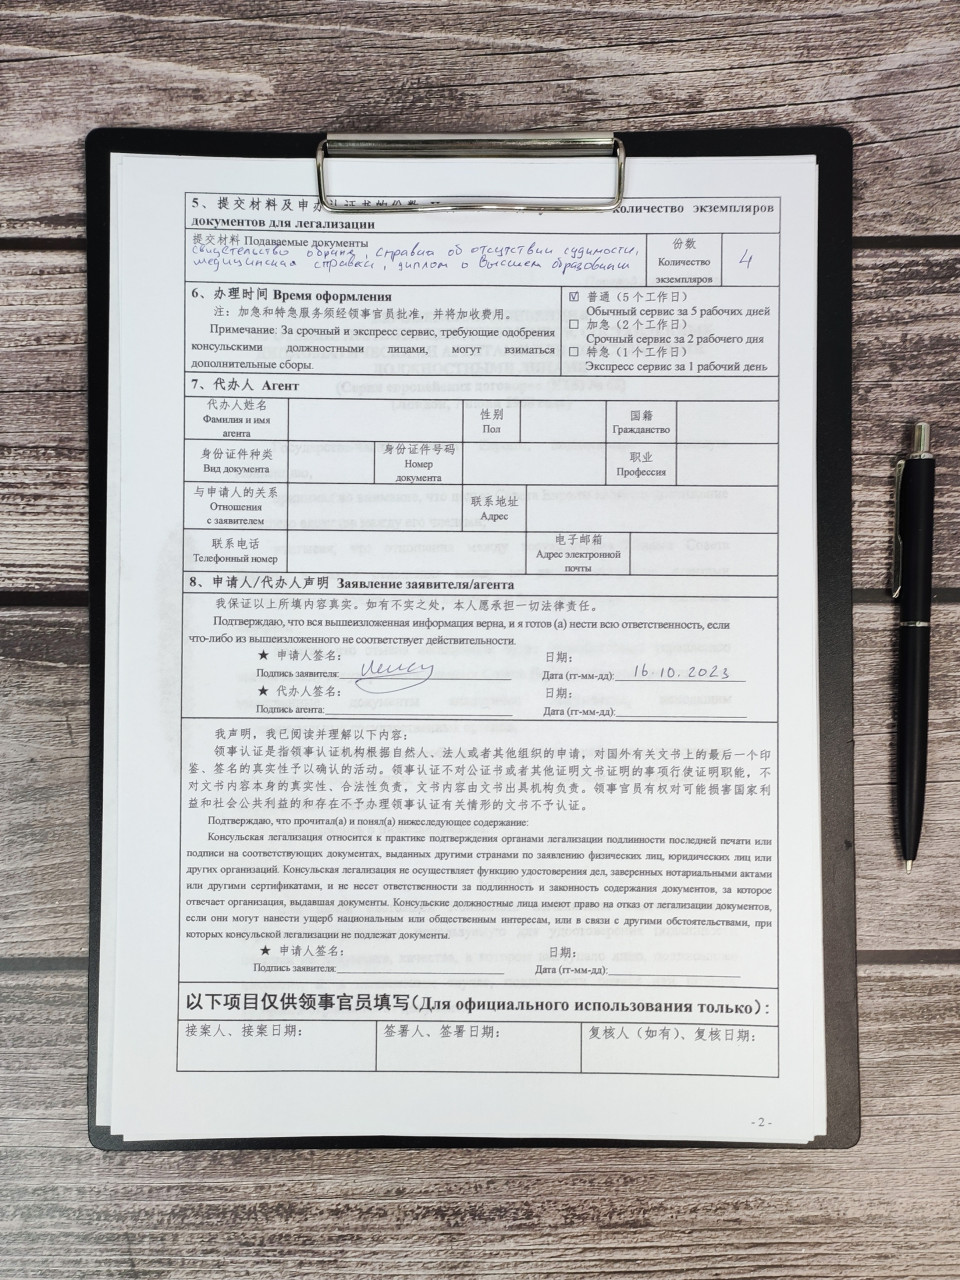 5、提交材料及申办认证书的份数 количество экземпляров
документов для легализации
提交材料 Подаваемые документы
свидетельство о браке, справка об отсутствии судимости,
медицинская справка, диплом о высшем образовании
份数
Количество
экземпляров
4
6、办理时间 Время оформления
注：加急和特急服务须经领事官员批准，并将加收费用。
Примечание: За срочный и экспресс сервис, требующие одобрения
консульскими должностными лицами, могут взиматься
дополнительные сборы.
☑ 普通（5 个工作日）
Обычный сервис за 5 рабочих дней
☐ 加急（2 个工作日）
Срочный сервис за 2 рабочего дня
☐ 特急（1 个工作日）
Экспресс сервис за 1 рабочий день
7、代办人 Агент
代办人姓名
Фамилия и имя
агента
性别
Пол
国籍
Гражданство
身份证件种类
Вид документа
身份证件号码
Номер
документа
职业
Профессия
与申请人的关系
Отношения
с заявителем
联系地址
Адрес
联系电话
Телефонный номер
电子邮箱
Адрес электронной
почты
8、申请人/代办人声明 Заявление заявителя/агента
我保证以上所填内容真实。如有不实之处，本人愿承担一切法律责任。
Подтверждаю, что вся вышеизложенная информация верна, и я готов (а) нести всю ответственность, если
что-либо из вышеизложенного не соответствует действительности.
★ 申请人签名： 日期：
Подпись заявителя: Дата (гг-мм-дд): 16.10.2023
★ 代办人签名： 日期：
Подпись агента: Дата (гг-мм-дд):
我声明，我已阅读并理解以下内容：
领事认证是指领事认证机构根据自然人、法人或者其他组织的申请，对国外有关文书上的最后一个印
鉴、签名的真实性予以确认的活动。领事认证不对公证书或者其他证明文书证明的事项行使证明职能，不
对文书内容本身的真实性、合法性负责，文书内容由文书出具机构负责。领事官员有权对可能损害国家利
益和社会公共利益的和存在不予办理领事认证有关情形的文书不予认证。
Подтверждаю, что прочитал(а) и понял(а) нижеследующее содержание:
Консульская легализация относится к практике подтверждения органами легализации подлинности последней печати или
подписи на соответствующих документах, выданных другими странами по заявлению физических лиц, юридических лиц или
других организаций. Консульская легализация не осуществляет функцию удостоверения дел, заверенных нотариальными актами
или другими сертификатами, и не несет ответственности за подлинность и законность содержания документов, за которое
отвечает организация, выдавшая документы. Консульские должностные лица имеют право на отказ от легализации документов,
если они могут нанести ущерб национальным или общественным интересам, или в связи с другими обстоятельствами, при
которых консульской легализации не подлежат документы.
★ 申请人签名： 日期：
Подпись заявителя: Дата (гг-мм-дд):
以下项目仅供领事官员填写(Для официального использования только)：
接案人、接案日期：
签署人、签署日期：
复核人（如有）、复核日期：
- 2 -